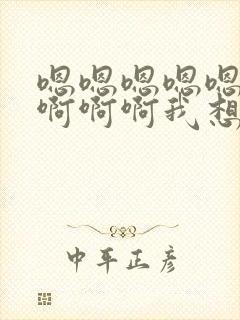 嗯嗯嗯嗯嗯
啊啊啊我想
中平正彦